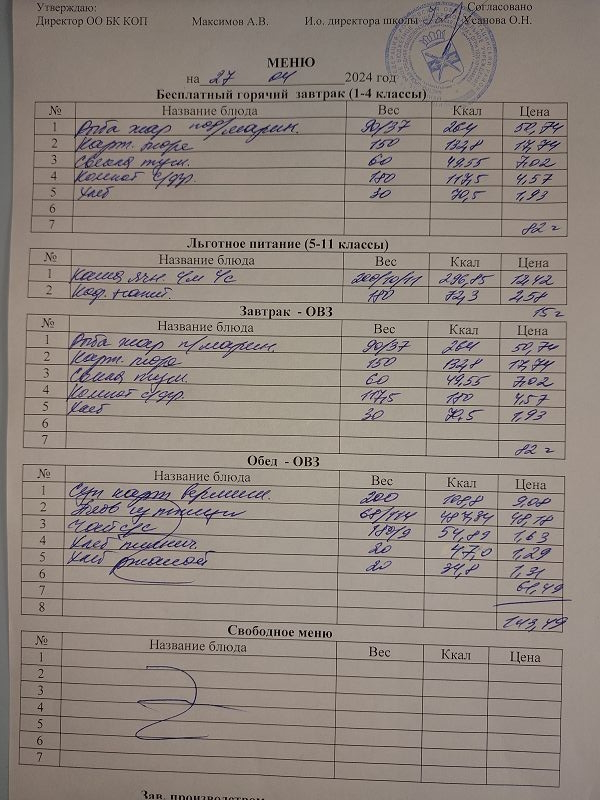 Утверждаю: Согласовано
Директор ОО БК КОП Максимов А.В. И.о. директора школы Усанова О.Н.
МЕНЮ
на 27 04 2024 год
Бесплатный горячий завтрак (1-4 классы)
№ Название блюда Вес Ккал Цена
1 Рыба жар под/марин. 90/37 264 50,74
2 Карт. пюре 150 132,8 17,74
3 Свекла туш. 60 49,55 7,02
4 Компот с/фр. 180 117,5 4,57
5 Хлеб 30 70,5 1,93
6
7 82 =
Льготное питание (5-11 классы)
№ Название блюда Вес Ккал Цена
1 Каша ячн. с/м с/с 200/10/11 296,85 12,42
2 Коф. напит. 180 72,3 2,58
15 =
Завтрак - ОВЗ
№ Название блюда Вес Ккал Цена
1 Рыба жар п/марин. 90/37 264 50,74
2 Карт. пюре 150 132,8 17,74
3 Свекла туш. 60 49,55 7,02
4 Компот с/фр. 117,5 180 4,57
5 Хлеб 30 70,5 1,93
6
7 82 =
Обед - ОВЗ
№ Название блюда Вес Ккал Цена
1 Суп карт вермиш. 200 108,8 9,08
2 Плов из птицы 68/114 487,84 48,18
3 Чай с/с 180/9 54,89 1,63
4 Хлеб пшенич. 20 47,0 1,29
5 Хлеб ржаной 20 34,8 1,31
6 61,49
7
8 143,49
Свободное меню
№ Название блюда Вес Ккал Цена
1
2
3
4
5
6
7
Зав. производством